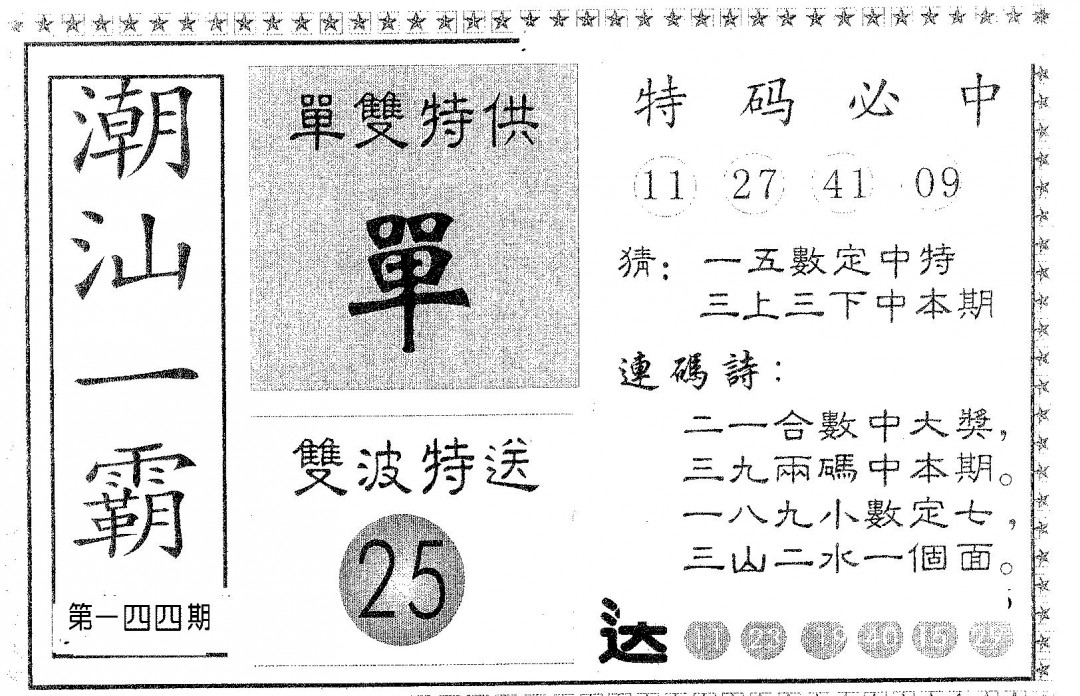 潮汕一霸
第一四四期
單雙特供
單
雙波特送
25
特码必中
11 27 41 09
猜：一五數定中特
三上三下中本期
連碼詩：
二一合數中大獎，
三九兩碼中本期。
一八九小數定七，
三山二水一個面。
送 11 23 19 40 15